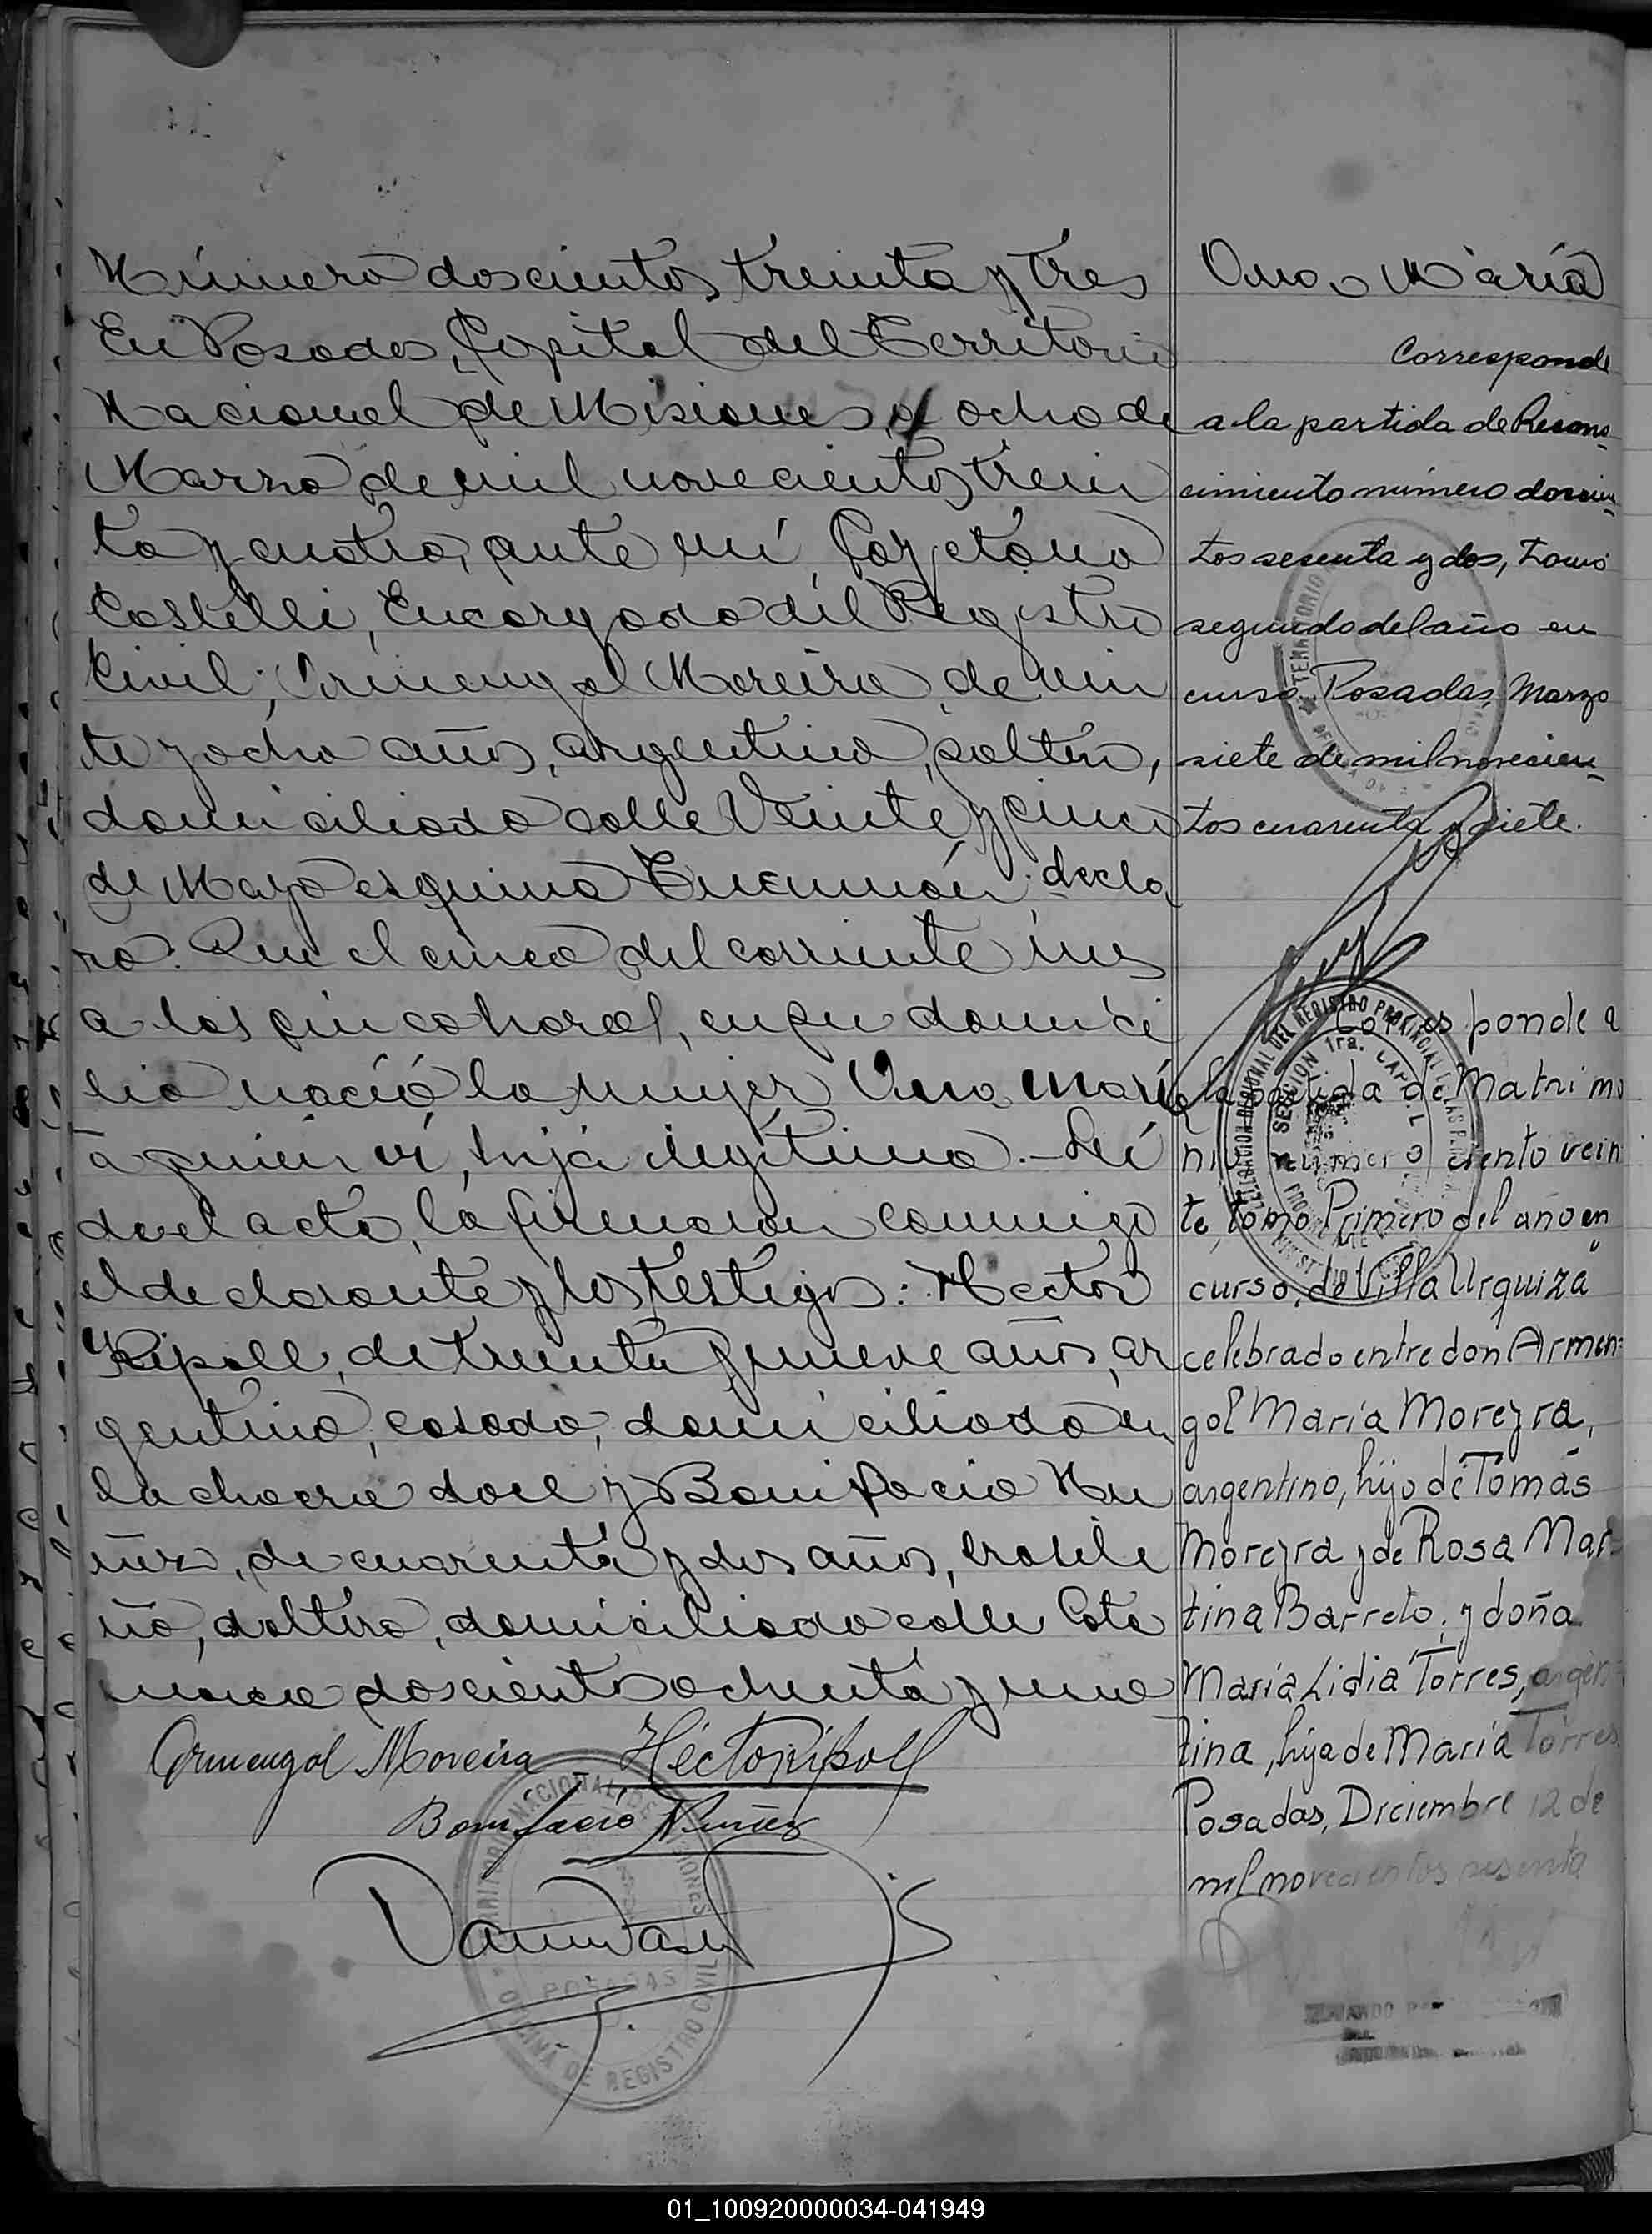 Número doscientos treinta y tres
En Posadas, Capital del Territorio
Nacional de Misiones, a ocho de
Marzo de mil novecientos trein
ta y cuatro, ante mí, Cayetano
Castelli, Encargado del Registro
Civil; Armengol Moreira, de vein
te y ocho años, argentino, soltero,
domiciliado calle Veinte y cinco
de Mayo esquina Tucumán: decla
ró: Que el cinco del corriente mes
a las cinco horas, en su domici
lio nació la mujer Ana María
a quién ví, hija ilegítima.- Leí
da el acta, la firmaron conmigo
el declarante y los testigos: Hector
Ripoll, de treinta y nueve años, ar
gentino, casado, domiciliado en
la chacra doce y Bonifacio Nu
ñez, de cuarenta y dos años, brasile
ño, soltero, domiciliado calle Cata
marca doscientos ochenta y uno
Armengol Moreira Héctor Ripoll
Bonifacio Nuñez
POSADAS
OFICINA DE REGISTRO CIVIL
Ana María
Corresponde
a la partida de Recono-
cimiento número doscien-
tos sesenta y dos, tomo
segundo del año en
curso. Posadas, Marzo
siete de mil novecien-
tos cuarenta y siete.
Corresponde a
la partida de Matrimo
nio número ciento vein
te, tomo Primero del año en
curso, de Villa Urquiza
celebrado entre don Armen=
gol María Moreyra,
argentino, hijo de Tomás
Moreyra y de Rosa Mar=
tina Barreto; y doña
María Lidia Torres, argen=
tina, hija de María Torres
Posadas, Diciembre 12 de
mil novecientos sesenta
01_100920000034-041949